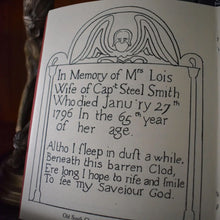 In Memory of Mrs Lois
Wife of Capt Steel Smith
Who died Janu'ry 27th
1796 In the 65th year
of her age.
Altho I ſleep in duſt a while,
Beneath this barren Clod,
Ere long I hope to riſe and ſmile
To ſee my Saveiour God.
Old South